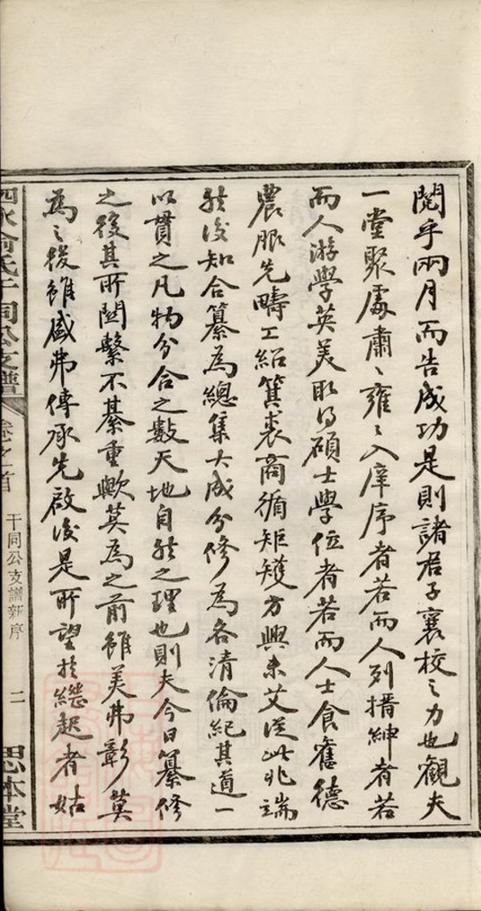 閱乎兩月而告成功是則諸君子襄校之力也觀夫
一堂聚處肅〻雍〻入庠序者若而人列搢紳者若
而人游學英美取得碩士學位者若而人士食舊德
農服先疇工紹箕裘商循矩矱方興未艾從此兆端
然後知合纂為總集大成分修為各清倫紀其道一
以貫之凡物分合之數天地自然之理也則夫今日纂修
之後其所關繫不綦重歟莫為之前雖美弗彰莫
為之後雖盛弗傳承先啟後是所望於繼起者姑
泗水俞氏干同公支譜 卷之首 干同公支譜新序 二 思本堂